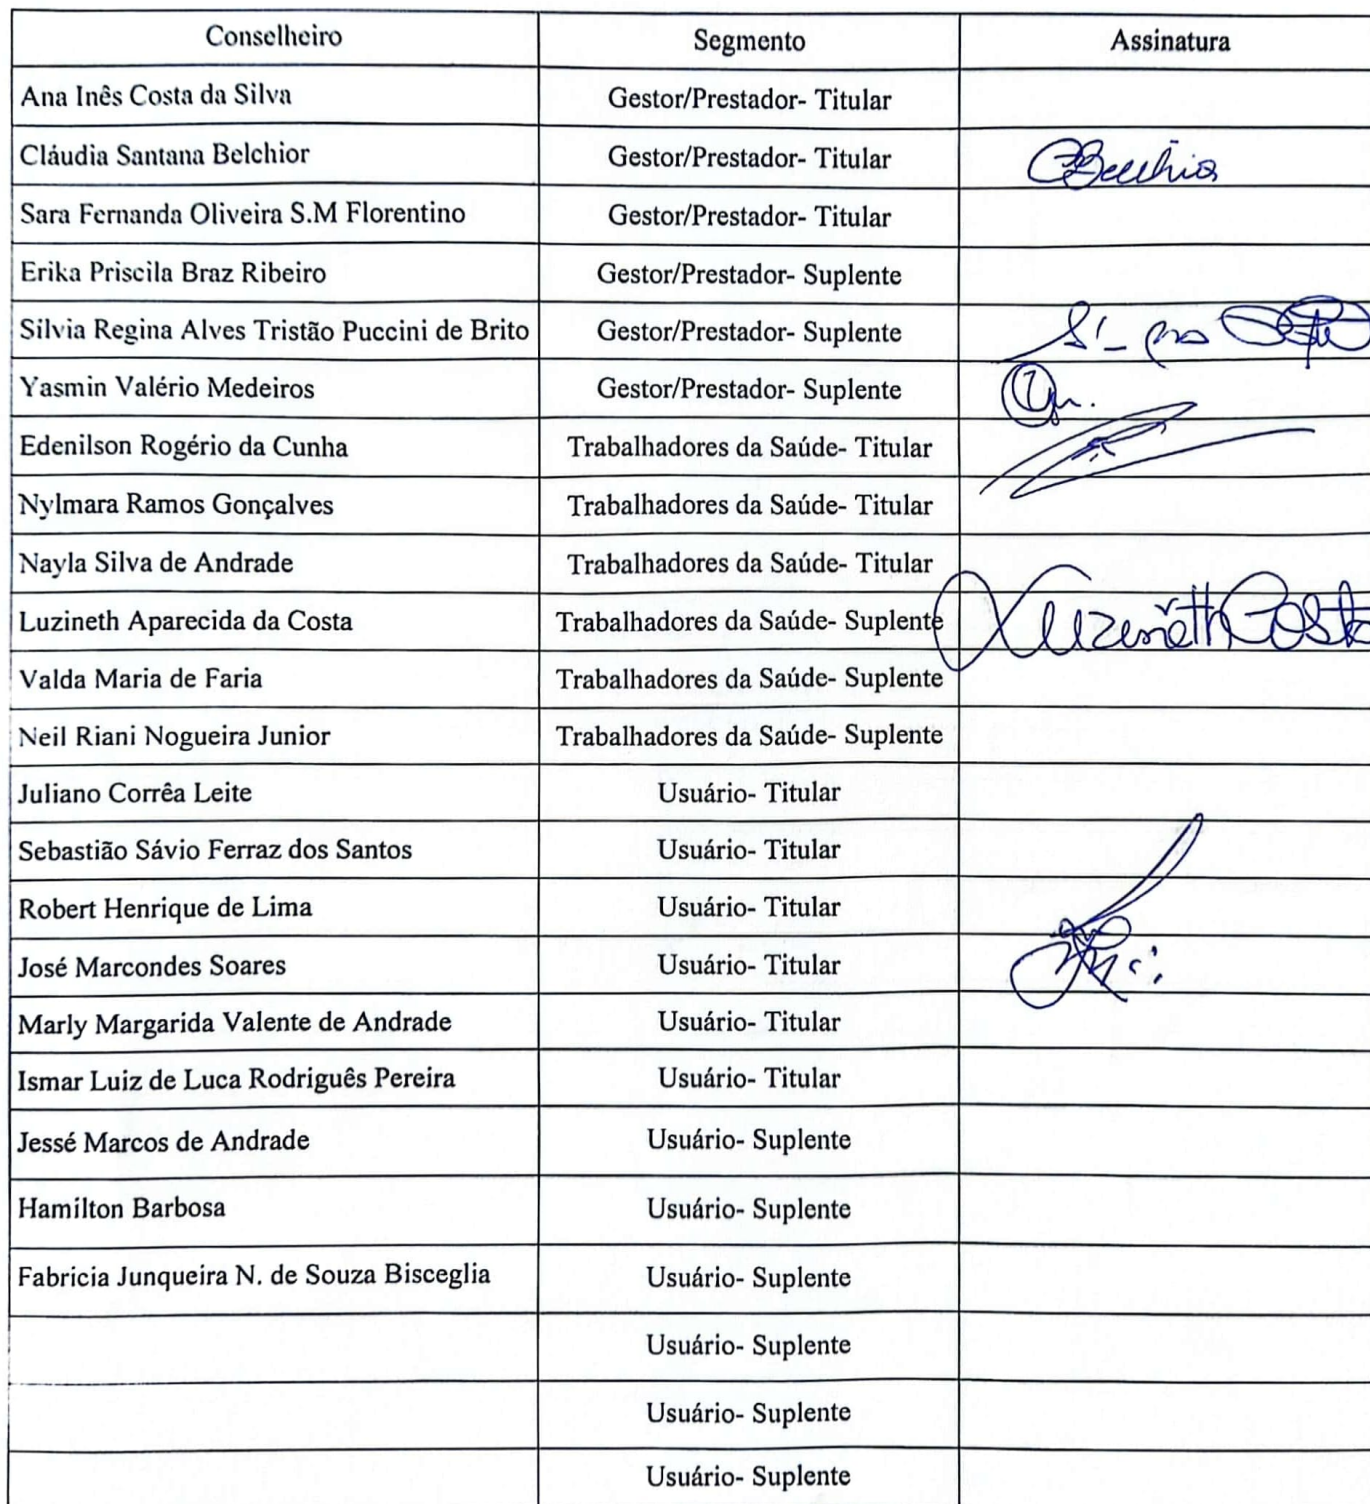 Conselheiro Segmento Assinatura
Ana Inês Costa da Silva Gestor/Prestador- Titular
Cláudia Santana Belchior Gestor/Prestador- Titular CBelchior
Sara Fernanda Oliveira S.M Florentino Gestor/Prestador- Titular
Erika Priscila Braz Ribeiro Gestor/Prestador- Suplente
Silvia Regina Alves Tristão Puccini de Brito Gestor/Prestador- Suplente
Yasmin Valério Medeiros Gestor/Prestador- Suplente
Edenilson Rogério da Cunha Trabalhadores da Saúde- Titular
Nylmara Ramos Gonçalves Trabalhadores da Saúde- Titular
Nayla Silva de Andrade Trabalhadores da Saúde- Titular
Luzineth Aparecida da Costa Trabalhadores da Saúde- Suplente Luzineth Costa
Valda Maria de Faria Trabalhadores da Saúde- Suplente
Neil Riani Nogueira Junior Trabalhadores da Saúde- Suplente
Juliano Corrêa Leite Usuário- Titular
Sebastião Sávio Ferraz dos Santos Usuário- Titular
Robert Henrique de Lima Usuário- Titular
José Marcondes Soares Usuário- Titular
Marly Margarida Valente de Andrade Usuário- Titular
Ismar Luiz de Luca Rodriguês Pereira Usuário- Titular
Jessé Marcos de Andrade Usuário- Suplente
Hamilton Barbosa Usuário- Suplente
Fabricia Junqueira N. de Souza Bisceglia Usuário- Suplente
Usuário- Suplente
Usuário- Suplente
Usuário- Suplente